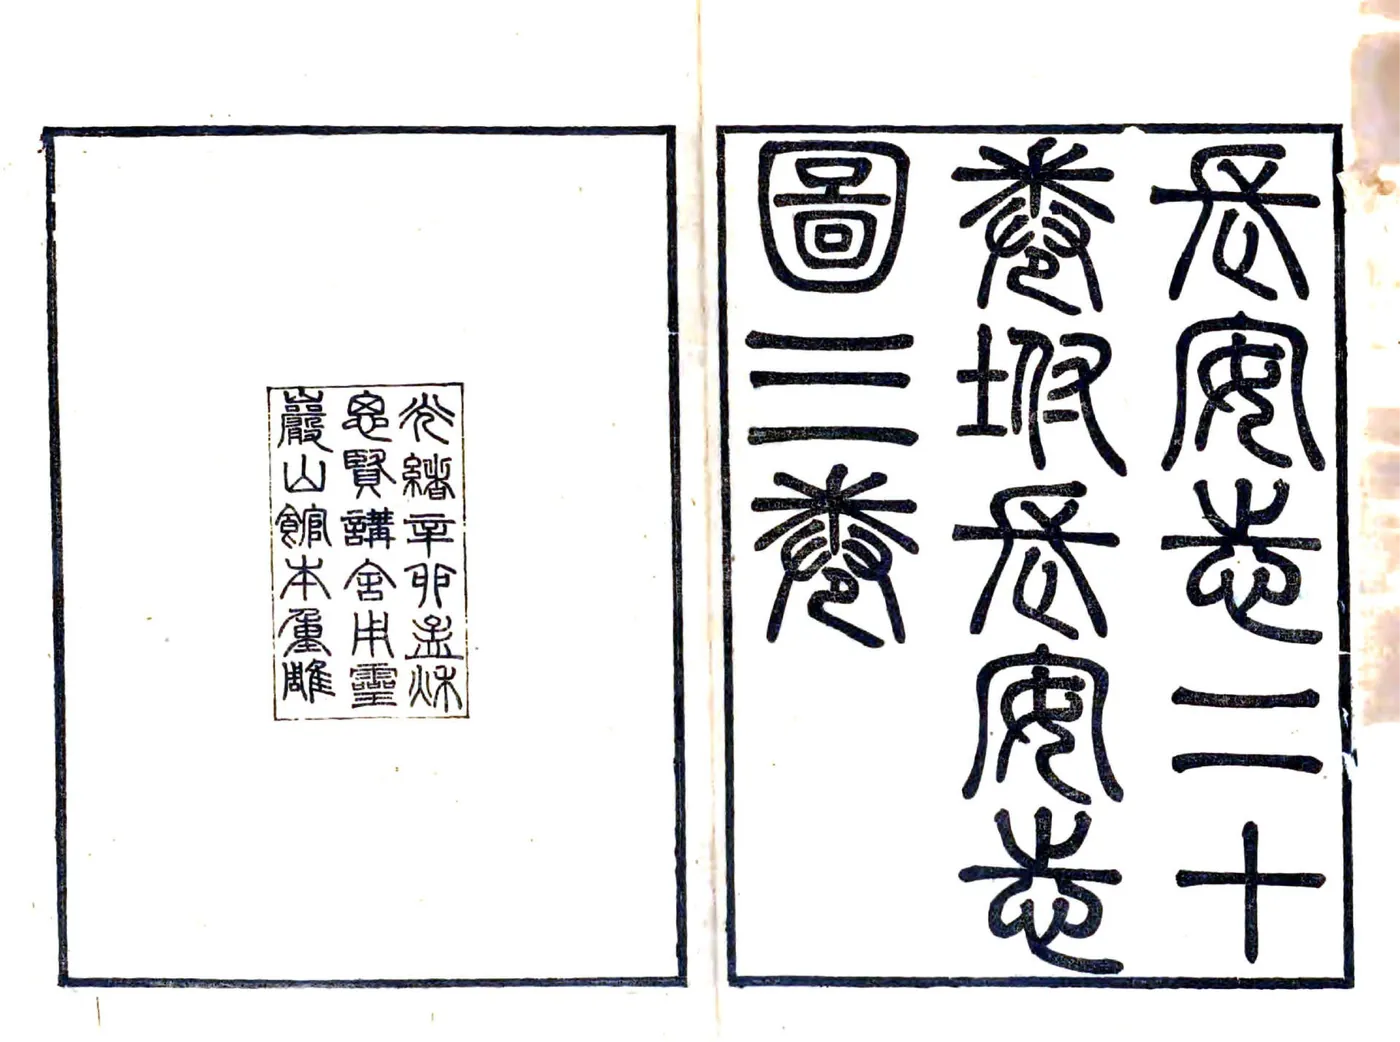 長安志二十
卷坿長安志
圖三卷
光緒辛卯孟秋
思賢講舍用靈
巖山館本重雕